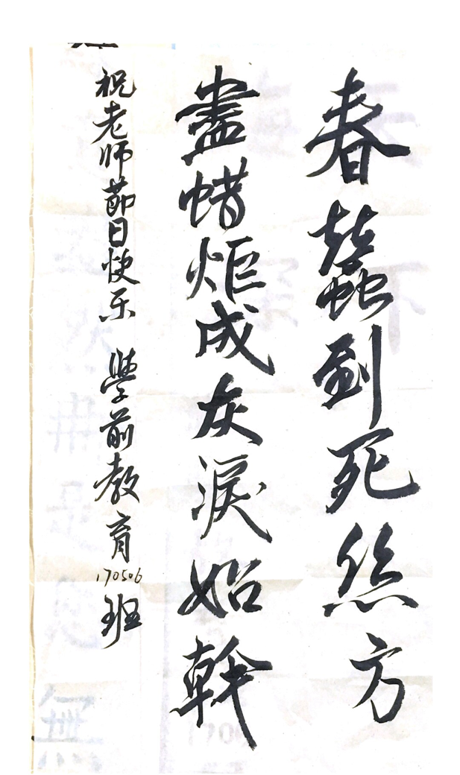 春蠶到死丝方
盡蜡炬成灰淚始幹
祝老师節日快乐 學前教育170506班